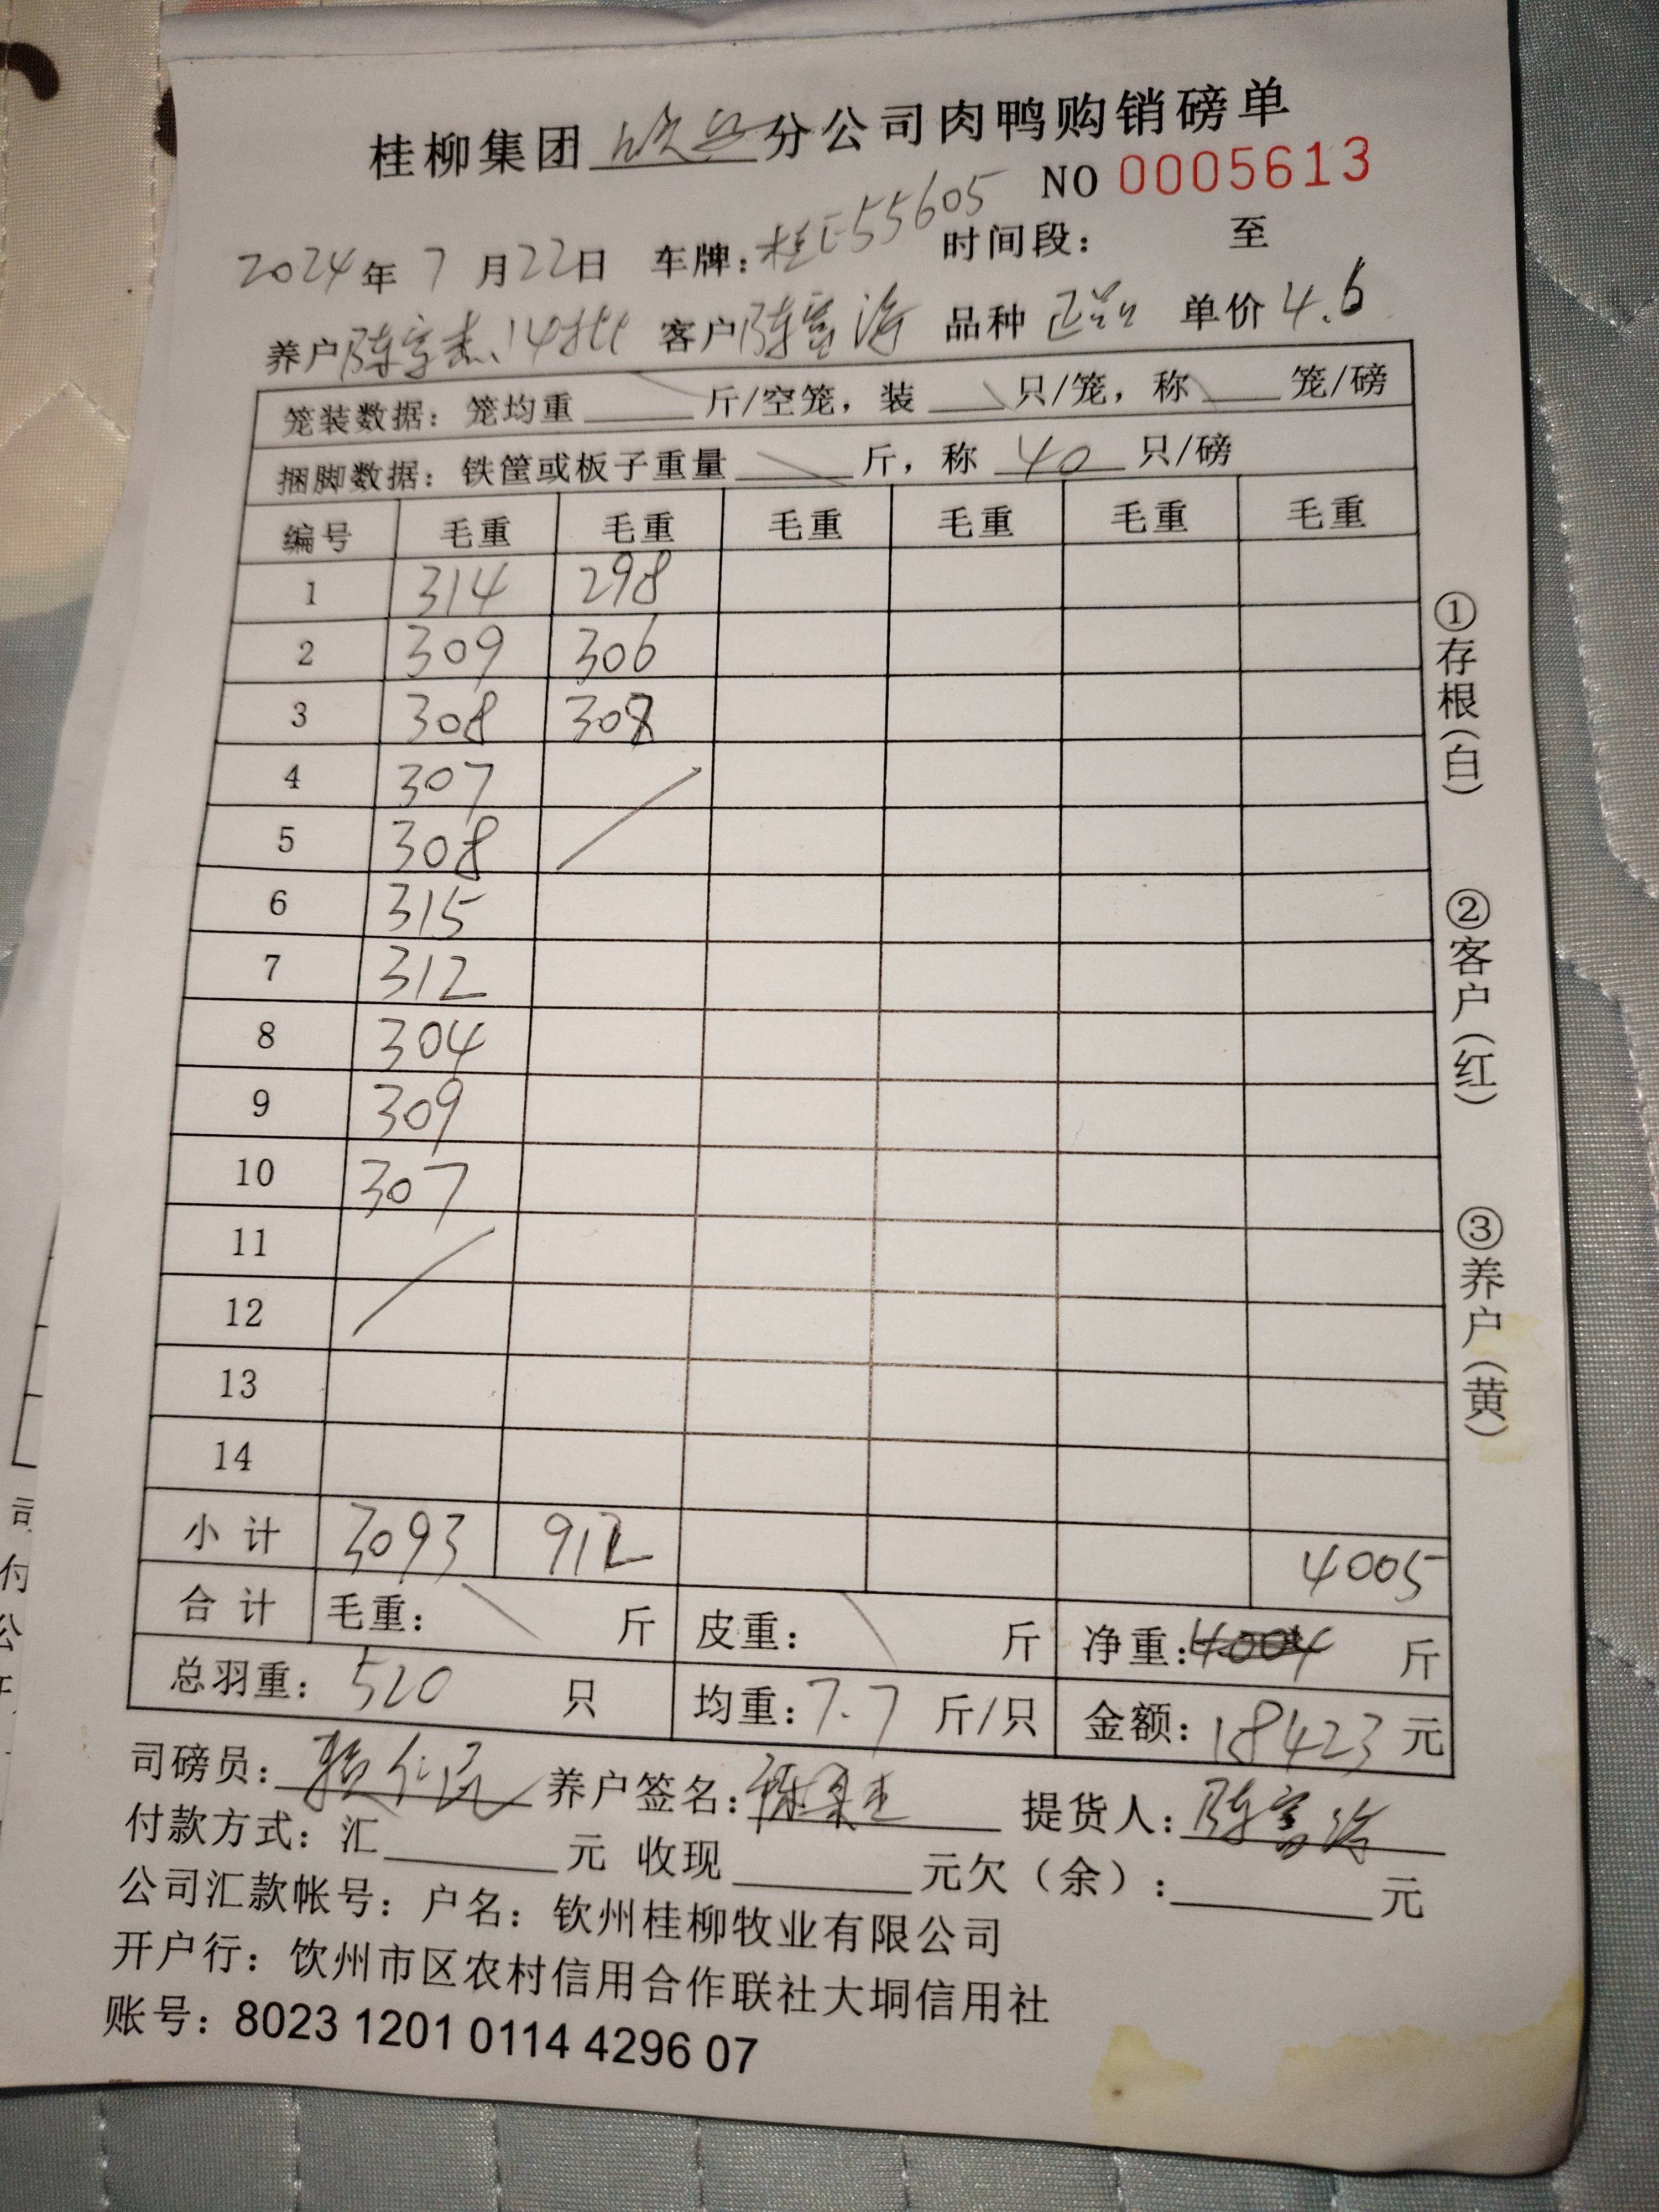 桂柳集团 钦 分公司肉鸭购销磅单
NO 0005613
2024年 7 月22日 车牌:桂E55605 时间段: 至
养户 陈 杰、14批 客户 陈富海 品种 正品 单价 4.6
笼装数据: 笼均重 斤/空笼，装 只/笼，称 笼/磅
捆脚数据: 铁筐或板子重量 斤，称 40 只/磅
编号 毛重 毛重 毛重 毛重 毛重 毛重
1 314 298
2 309 306
3 308 308
4 307
5 308
6 315
7 312
8 304
9 309
10 307
11
12
13
14
小计 3093 912 4005
合计 毛重: 斤 皮重: 斤 净重:4004 斤
总羽重: 520 只 均重:7.7 斤/只 金额:18423 元
司磅员: 养户签名: 陈 杰 提货人: 陈富海
付款方式: 汇 元 收现 元欠（余）: 元
公司汇款帐号: 户名: 钦州桂柳牧业有限公司
开户行: 饮州市区农村信用合作联社大垌信用社
账号: 8023 1201 0114 4296 07
①存根(白)
②客户(红)
③养户(黄)
司
付
公